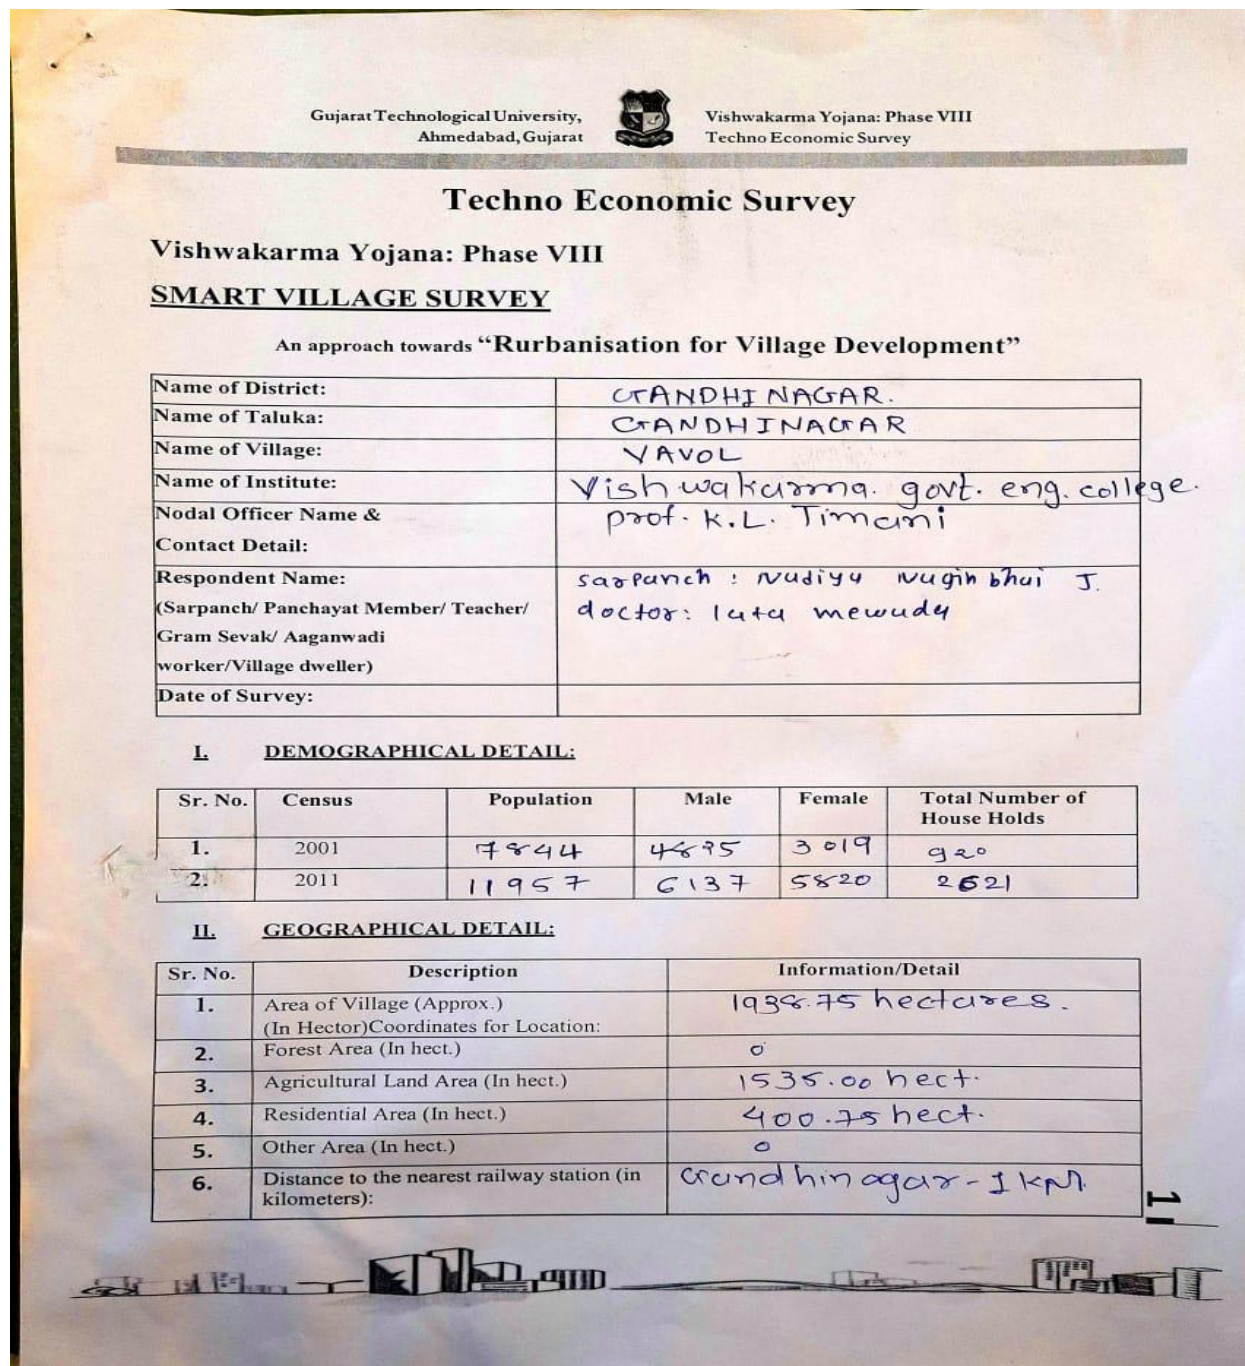 Gujarat Technological University,
Ahmedabad, Gujarat
Vishwakarma Yojana: Phase VIII
Techno Economic Survey
Techno Economic Survey
Vishwakarma Yojana: Phase VIII
SMART VILLAGE SURVEY
An approach towards “Rurbanisation for Village Development”
Name of District: GANDHINAGAR.
Name of Taluka: GANDHINAGAR
Name of Village: VAVOL
Name of Institute: Vishwakarma. govt. eng. college.
Nodal Officer Name & prof. K.L. Timani
Contact Detail:
Respondent Name: sarpanch : Nadiya Naginbhai J.
(Sarpanch/ Panchayat Member/ Teacher/ doctor: lata mewada
Gram Sevak/ Aaganwadi
worker/Village dweller)
Date of Survey:
I. DEMOGRAPHICAL DETAIL:
Sr. No. Census Population Male Female Total Number of
House Holds
1. 2001 7844 4825 3019 920
2. 2011 11957 6137 5820 2621
II. GEOGRAPHICAL DETAIL:
Sr. No. Description Information/Detail
1. Area of Village (Approx.) 1938.75 hectares.
(In Hector)Coordinates for Location:
2. Forest Area (In hect.) 0
3. Agricultural Land Area (In hect.) 1538.00 hect.
4. Residential Area (In hect.) 400.75 hect.
5. Other Area (In hect.) 0
6. Distance to the nearest railway station (in Gandhinagar - 1 KM.
kilometers):
1